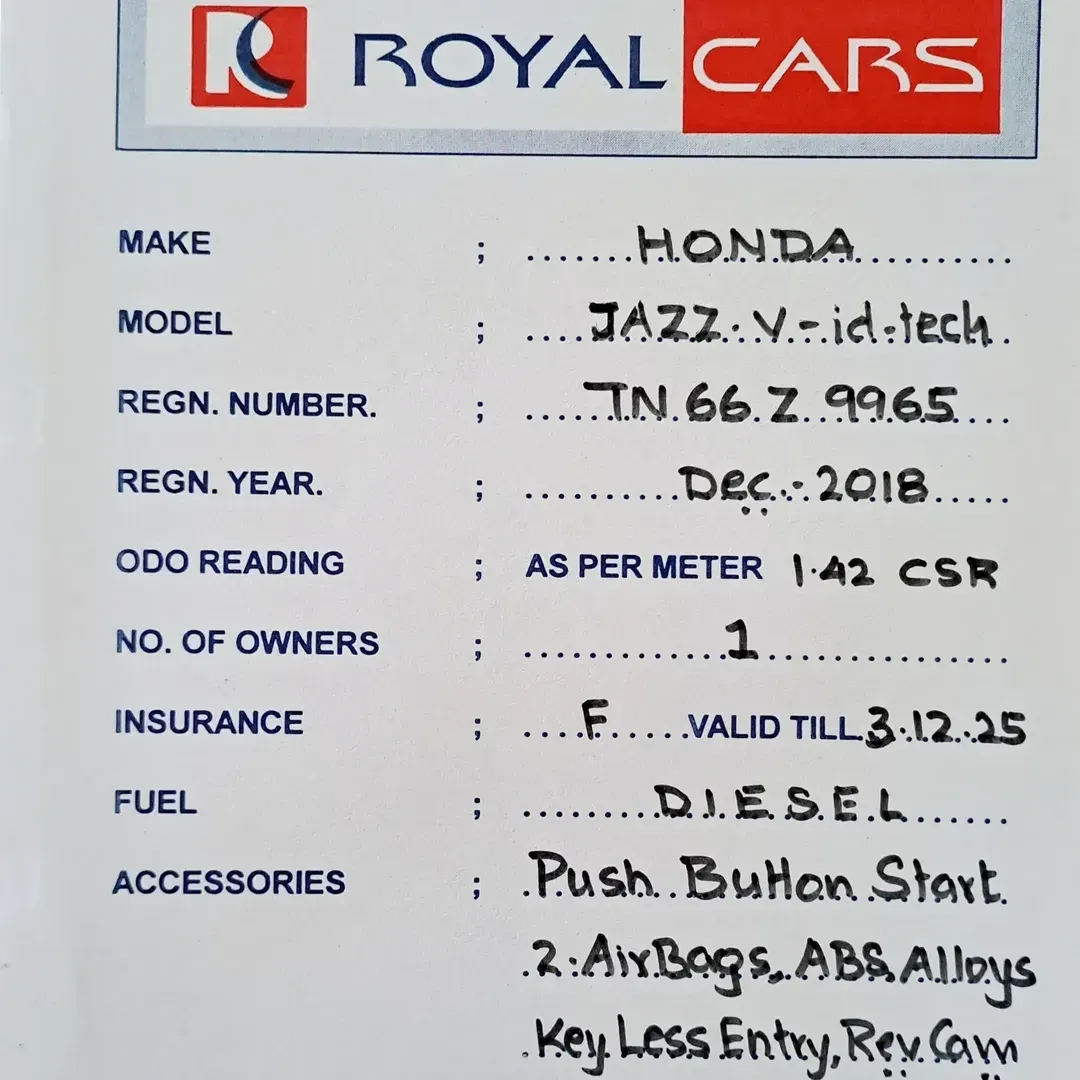 ROYAL CARS
MAKE ; HONDA
MODEL ; JAZZ. V-id-tech
REGN. NUMBER. ; TN 66 Z 9965
REGN. YEAR. ; Dec - 2018
ODO READING ; AS PER METER 1.42 CSR
NO. OF OWNERS ; 1
INSURANCE ; F VALID TILL 3.12.25
FUEL ; DIESEL
ACCESSORIES ; Push Button Start
2.AirBags, ABS, Alloys
Key Less Entry, Rev. Cam